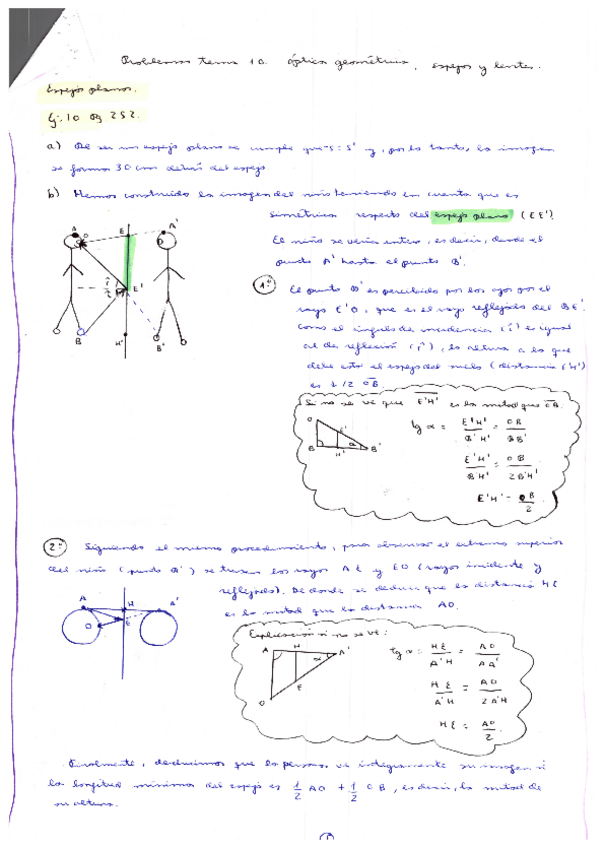 Problemas tema 10. Óptica geométrica, espejos y lentes.
Espejos planos.
Ej: 10 pg 252.
a) De ser un espejo plano se cumple que -s = s' y, por lo tanto, la imagen
se forma 30 cm detrás del espejo.
b) Hemos construido la imagen del niño teniendo en cuenta que es
simétrica respecto del espejo plano (EE').
El niño se vería entero, es decir, desde el
punto A' hasta el punto B'.
A
O
E
A'
î
r̂
E'
B
H'
B'
1º
El punto B' es percibido por los ojos por el
rayo E'O, que es el rayo reflejado del BE'.
Como el ángulo de incidencia (î) es igual
al de reflexión (r̂), la altura a la que
debe estar el espejo del suelo (distancia E'H')
es 1/2 OB.
Si no se ve que E'H' es la mitad que OB.
O
E'
B
H'
α
B'
tg α = E'H' / B'H' = OB / BB'
E'H' / B'H' = OB / 2B'H'
E'H' = OB / 2
2º
Siguiendo el mismo procedimiento, para observar el extremo superior
del niño (punto A') se trazan los rayos AE y EO (rayos incidente y
reflejado). De donde se deduce que la distancia HE
es la mitad que la distancia AO.
A
H
A'
O
E
Explicación si no se ve:
A
H
A'
α
E
O
tg α = HE / A'H = AO / AA'
HE / A'H = AO / 2A'H
HE = AO / 2.
Finalmente, deducimos que la persona ve íntegramente su imagen si
la longitud mínima del espejo es 1/2 AO + 1/2 OB, es decir, la mitad de
su altura.